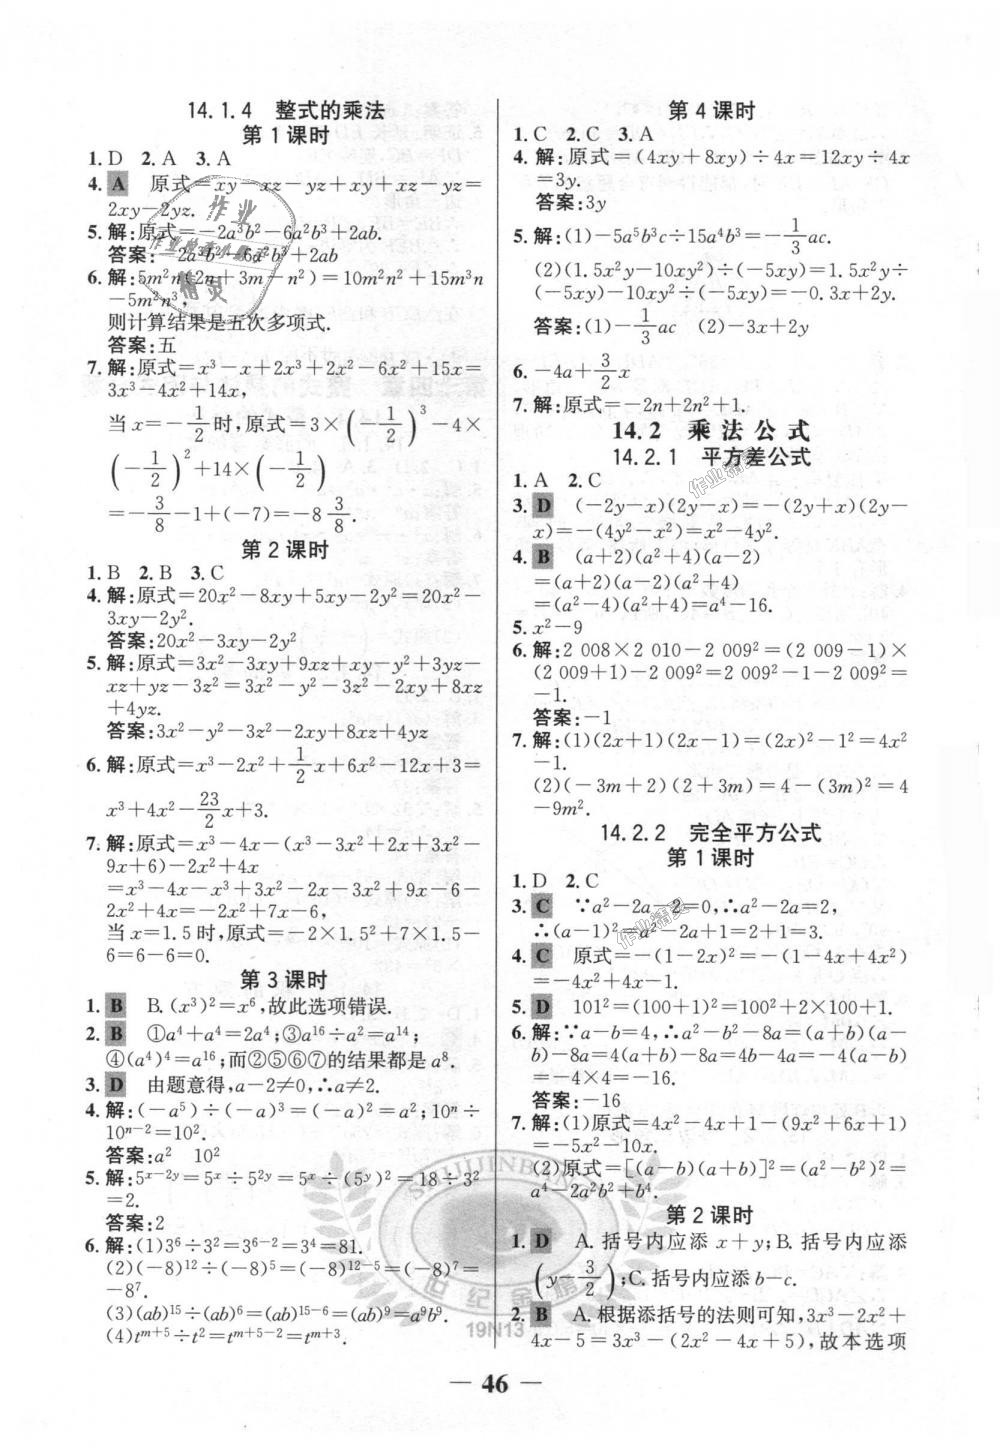 14.1.4 整式的乘法
第1课时
1. D 2. A 3. A
4. A 原式=xy-xz-yz+xy+xz-yz=
2xy-2yz.
5. 解:原式=-2a³b²-6a²b³+2ab.
答案:-2a³b²-6a²b³+2ab
6. 解:5m²n(2n+3m-n²)=10m²n²+15m³n
-5m²n³,
则计算结果是五次多项式.
答案:五
7. 解:原式=x³-x+2x³+2x²-6x²+15x=
3x³-4x²+14x,
当x=-1/2时,原式=3×(-1/2)³-4×
(-1/2)²+14×(-1/2)
=-3/8-1+(-7)=-8 3/8.
第2课时
1. B 2. B 3. C
4. 解:原式=20x²-8xy+5xy-2y²=20x²-
3xy-2y².
答案:20x²-3xy-2y²
5. 解:原式=3x²-3xy+9xz+xy-y²+3yz-
xz+yz-3z²=3x²-y²-3z²-2xy+8xz
+4yz.
答案:3x²-y²-3z²-2xy+8xz+4yz
6. 解:原式=x³-2x²+1/2x+6x²-12x+3=
x³+4x²-23/2x+3.
7. 解:原式=x³-4x-(x³-3x²+2x+x²-
9x+6)-2x²+4x
=x³-4x-x³+3x²-2x-3x²+9x-6-
2x²+4x=-2x²+7x-6,
当x=1.5时,原式=-2×1.5²+7×1.5-
6=6-6=0.
第3课时
1. B B.(x³)²=x⁶,故此选项错误.
2. B ①a⁴+a⁴=2a⁴;③a¹⁶÷a²=a¹⁴;
④(a⁴)⁴=a¹⁶;而②⑤⑥⑦的结果都是a⁸.
3. D 由题意得,a-2≠0,∴a≠2.
4. 解:(-a⁵)÷(-a)³=(-a)²=a²;10ⁿ÷
10ⁿ⁻²=10².
答案:a² 10²
5. 解:5ˣ⁻²ʸ=5ˣ÷5²ʸ=5ˣ÷(5ʸ)²=18÷3²
=2.
答案:2
6. 解:(1)3⁶÷3²=3⁶⁻²=3⁴=81.
(2)(-8)¹²÷(-8)⁵=(-8)¹²⁻⁵=(-8)⁷=
-8⁷.
(3)(ab)¹⁵÷(ab)⁶=(ab)¹⁵⁻⁶=(ab)⁹=a⁹b⁹.
(4)tᵐ⁺⁵÷t²=tᵐ⁺⁵⁻²=tᵐ⁺³.
第4课时
1. C 2. C 3. A
4. 解:原式=(4xy+8xy)÷4x=12xy÷4x
=3y.
答案:3y
5. 解:(1)-5a⁵b³c÷15a⁴b³=-1/3ac.
(2)(1.5x²y-10xy²)÷(-5xy)=1.5x²y÷
(-5xy)-10xy²÷(-5xy)=-0.3x+2y.
答案:(1)-1/3ac (2)-3x+2y
6. -4a+3/2x
7. 解:原式=-2n+2n²+1.
14.2 乘法公式
14.2.1 平方差公式
1. A 2. C
3. D (-2y-x)(2y-x)=-(2y+x)(2y-
x)=-(4y²-x²)=x²-4y².
4. B (a+2)(a²+4)(a-2)
=(a+2)(a-2)(a²+4)
=(a²-4)(a²+4)=a⁴-16.
5. x²-9
6. 解:2 008×2 010-2 009²=(2 009-1)×
(2 009+1)-2 009²=2 009²-1-2 009²=
-1.
答案:-1
7. 解:(1)(2x+1)(2x-1)=(2x)²-1²=4x²
-1.
(2)(-3m+2)(2+3m)=4-(3m)²=4
-9m².
14.2.2 完全平方公式
第1课时
1. D 2. C
3. C ∵a²-2a-2=0,∴a²-2a=2,
∴(a-1)²=a²-2a+1=2+1=3.
4. C 原式=-(1-2x)²=-(1-4x+4x²)
=-4x²+4x-1.
5. D 101²=(100+1)²=100²+2×100+1.
6. 解:∵a-b=4,∴a²-b²-8a=(a+b)(a-
b)-8a=4(a+b)-8a=4b-4a=-4(a-b)
=-4×4=-16.
答案:-16
7. 解:(1)原式=4x²-4x+1-(9x²+6x+1)
=-5x²-10x.
(2)原式=[(a-b)(a+b)]²=(a²-b²)²=
a⁴-2a²b²+b⁴.
第2课时
1. D A.括号内应添x+y;B.括号内应添
(y-3/2);C.括号内应添b-c.
2. B A.根据添括号的法则可知,3x³-2x²+
4x-5=3x³-(2x²-4x+5),故本选项
— 46 —
作业
精灵
作业精灵
作业精灵
SHIJIJINBANG
世纪金榜
19N13